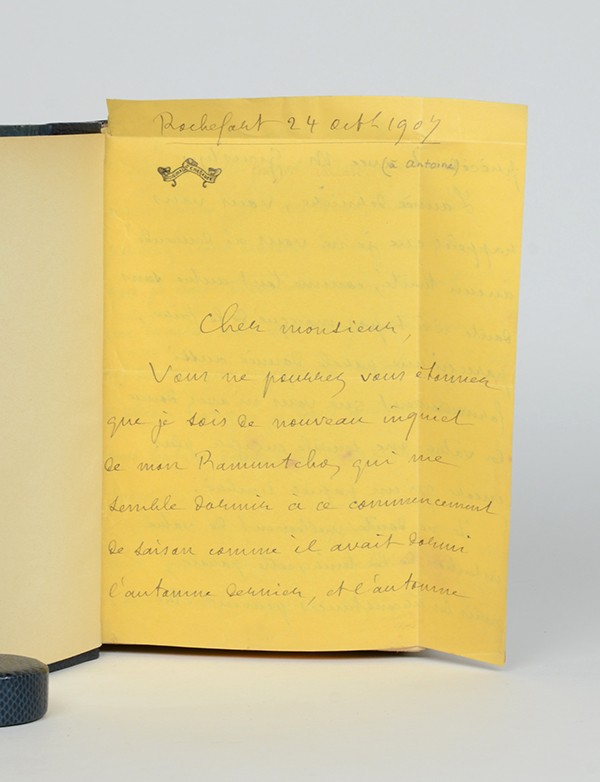 Rochefort 24 octb 1907
(à Antoine)
Cher monsieur,
Vous ne pourrez vous étonner
que je sois de nouveau inquiet
de mon Ramuntcho, qui me
semble dormir à ce commencement
de saison comme il avait dormi
l'automne dernier, et l'automne